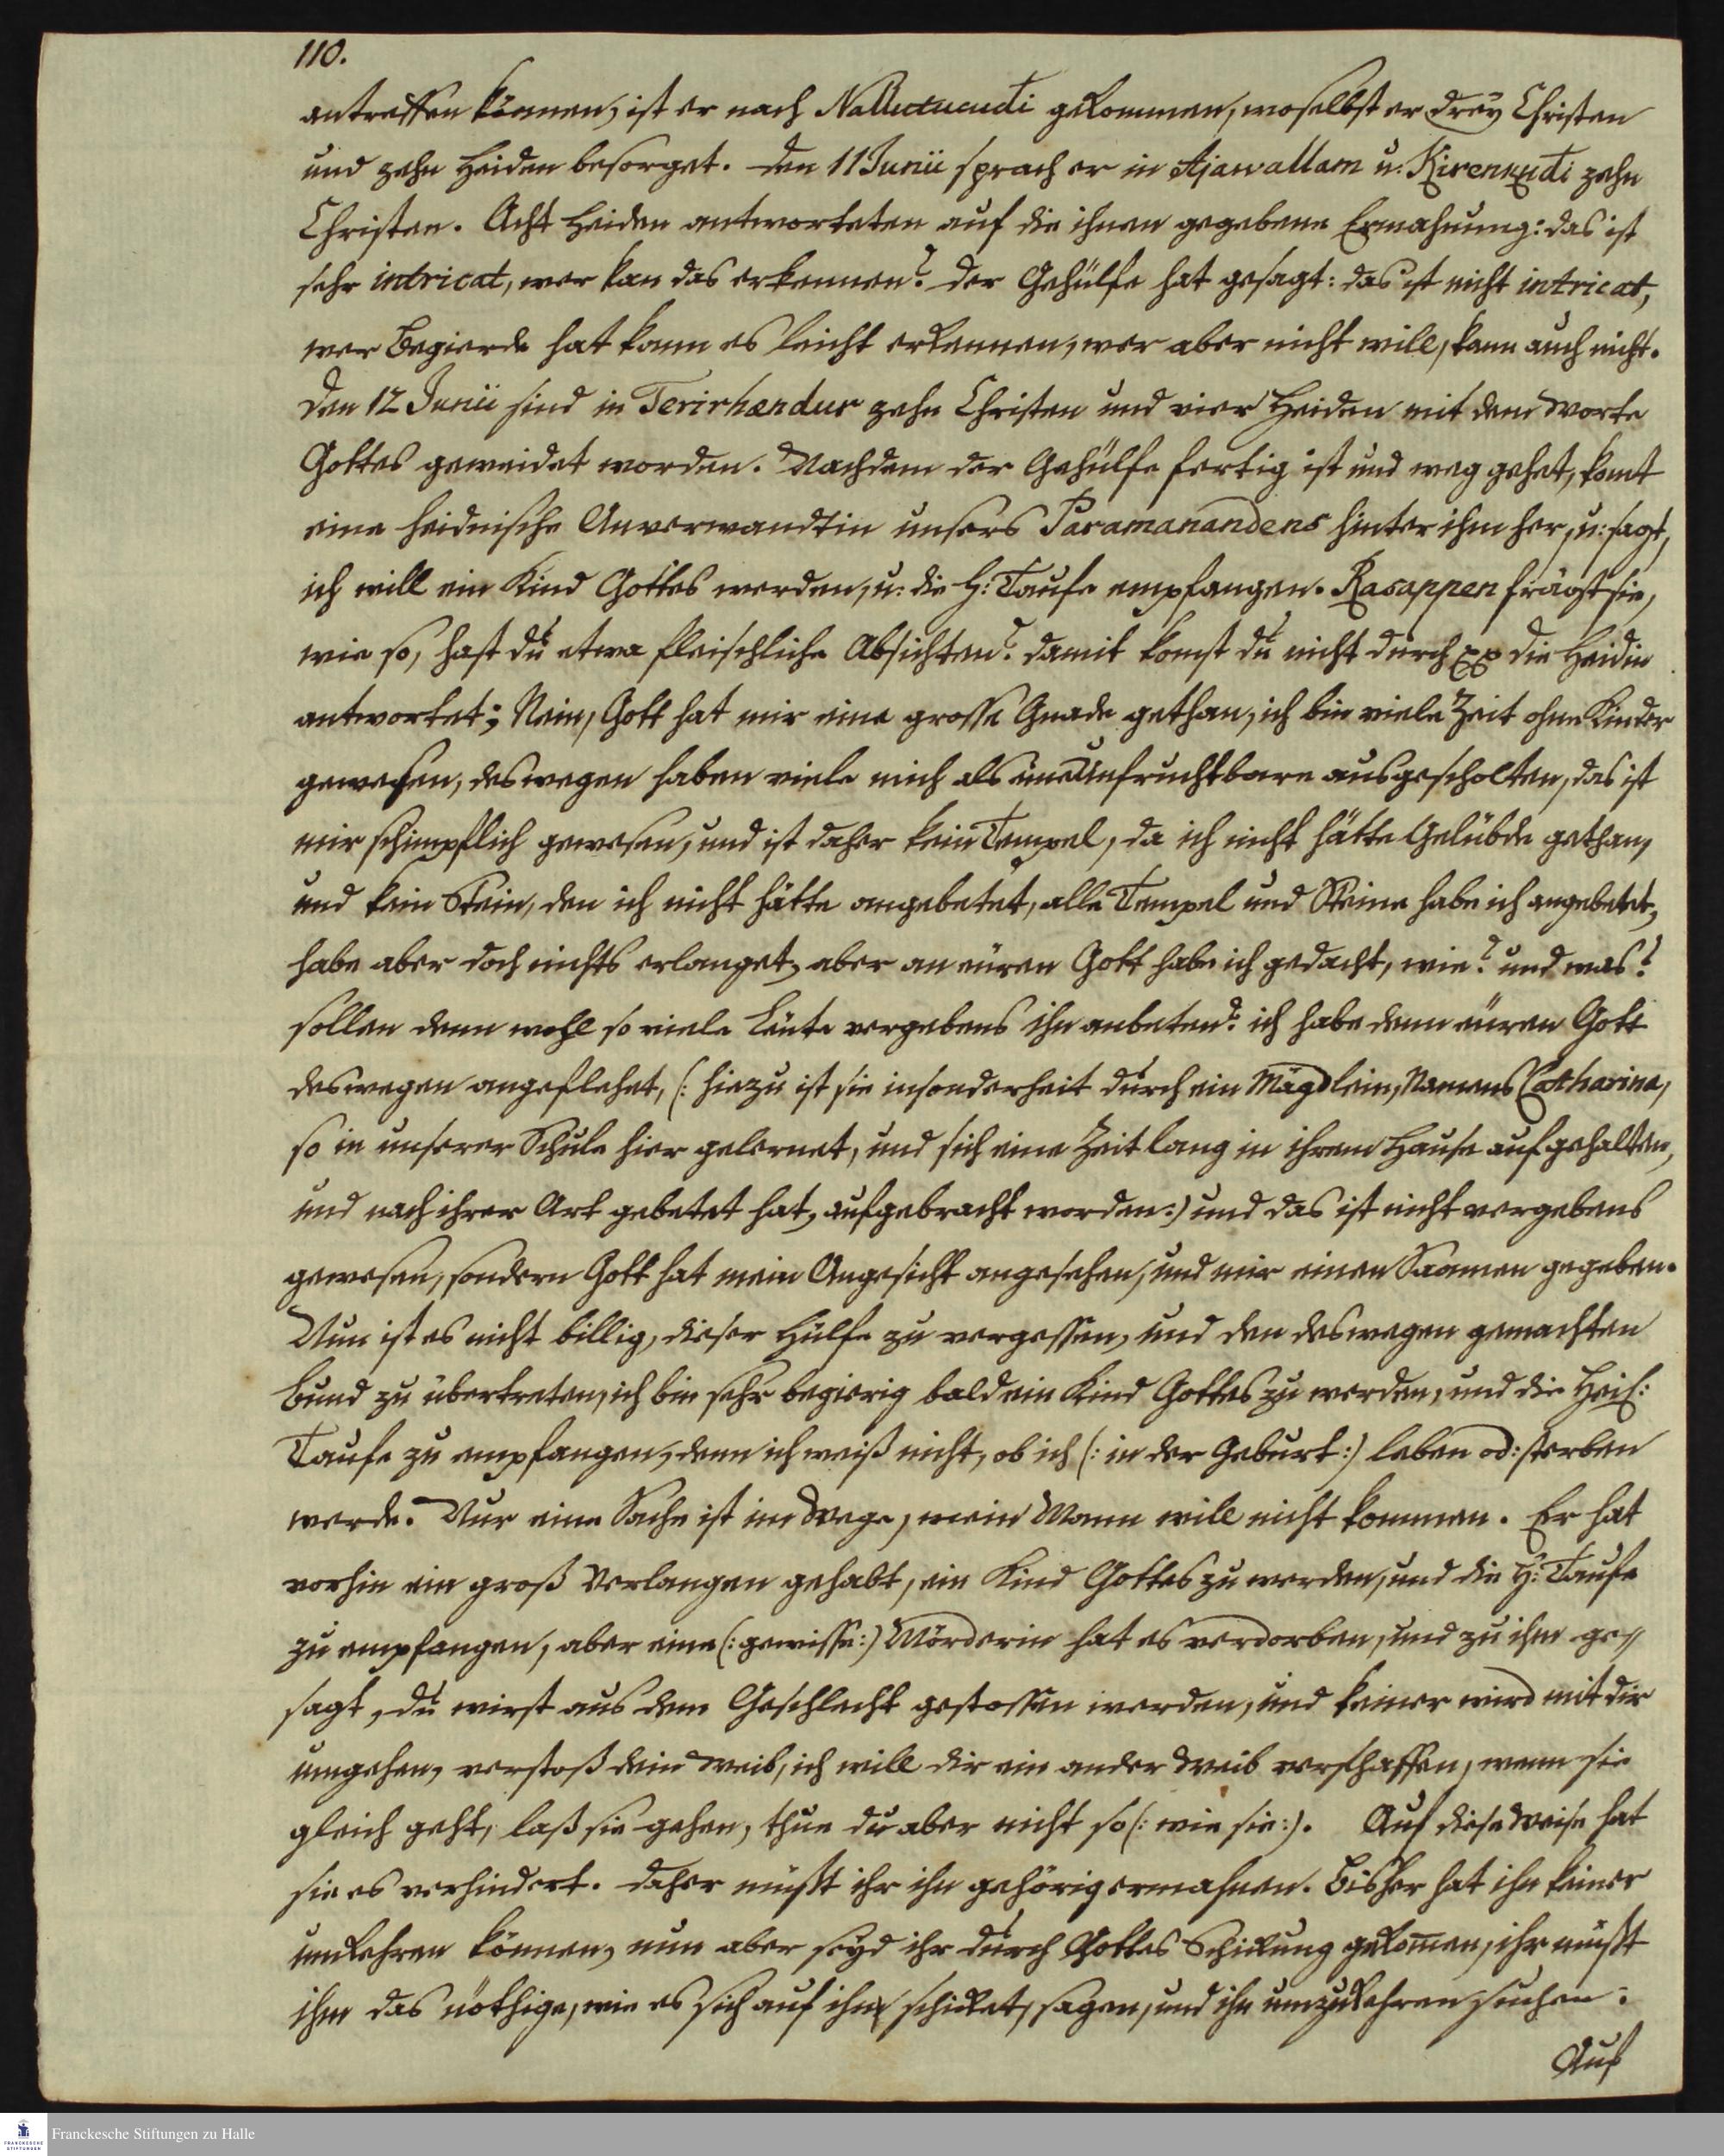 110.
antreffen können, ist er nach Nallucucudi gekommen, woselbst er drey Christen
und zehn Heiden besorget. Den 11 Junii sprach er in Ajawallam u: Kirenkudi zehn
Christen. Acht Heiden antworteten auf die ihnen gegebene Ermahnung: das ist
sehr intricat, wer kan das erkennen? Der Gehülfe hat gesagt: das ist nicht intricat,
wer Begierde hat kann es leicht erkennen, wer aber nicht will, kann auch nicht.
Den 12 Junii sind in Terirhændur zehn Christen und vier Heiden mit dem Worte
Gottes geweidet worden. Nachdem der Gehülfe fertig ist und weg gehet, komt
eine heidnische Anverwandtin unsers Paramanandens hinter ihm her, u: sagt,
ich will ein Kind Gottes werden, u: die H: Taufe empfangen. Rasappen frägt sie,
wie so, hast du etwa fleischliche Absichten? damit komst du nicht durch pp die Heidin
antwortet; Nein, Gott hat mir eine grosse Gnade gethan, ich bin viele Zeit ohne Kinder
gewesen, deswegen haben viele mich als eine Unfruchtbare ausgescholten, das ist
mir schimpflich gewesen, und ist daher kein Tempel, da ich nicht hätte Gelübde gethan,
und kein Stein, den ich nicht hätte angebetet, alle Tempel und Steine habe ich angebetet,
habe aber doch nichts erlanget, aber an euren Gott habe ich gedacht, wie? und was?
sollen denn wohl so viele Leute vergebens ihn anbeten? ich habe denn euren Gott
deswegen angeflehet, (: hiezu ist sie insonderheit durch ein Mägdlein, Namens Catharina,
so in unserer Schule hier gelernet, und sich eine Zeit lang in ihrem Hause aufgehalten,
und nach ihrer Art gebetet hat, aufgebracht worden:) und das ist nicht vergebens
gewesen, sondern Gott hat mein Angesicht angesehen, und mir einen Saamen gegeben.
Nun ist es nicht billig, dieser Hülfe zu vergessen, und den deswegen gemachten
Bund zu übertreten, ich bin sehr begierig bald ein Kind Gottes zu werden, und die Heil:
Taufe zu empfangen, denn ich weiß nicht, ob ich (: in der Geburt:) leben od: sterben
werde. Nur eine Sache ist im Wege, mein Mann will nicht kommen. Er hat
vorhin ein groß Verlangen gehabt, ein Kind Gottes zu werden, und die H: Taufe
zu empfangen, aber eine (: gewisse:) Mörderin hat es verdorben, und zu ihm ge=
sagt, du wirst aus dem Geschlecht gestossen werden, und keiner wird mit dir
umgehen, verstoß dein Weib, ich will dir ein ander Weib verschaffen, wenn sie
gleich geht, laß sie gehen, thue du aber nicht so (: wie sie:). Auf diese Weise hat
sie es verhindert. Daher müßt ihr ihn gehörig ermahnen. Bisher hat ihn keiner
umkehren können, nun aber seyd ihr durch Gottes Schickung gekom̄en, ihr müßt
ihm das nöthige, wie es sich auf ihn schicket, sagen, und ihn umzukehren suchen.
Auf
Franckesche Stiftungen zu Halle
FRANCKESCHE
STIFTUNGEN